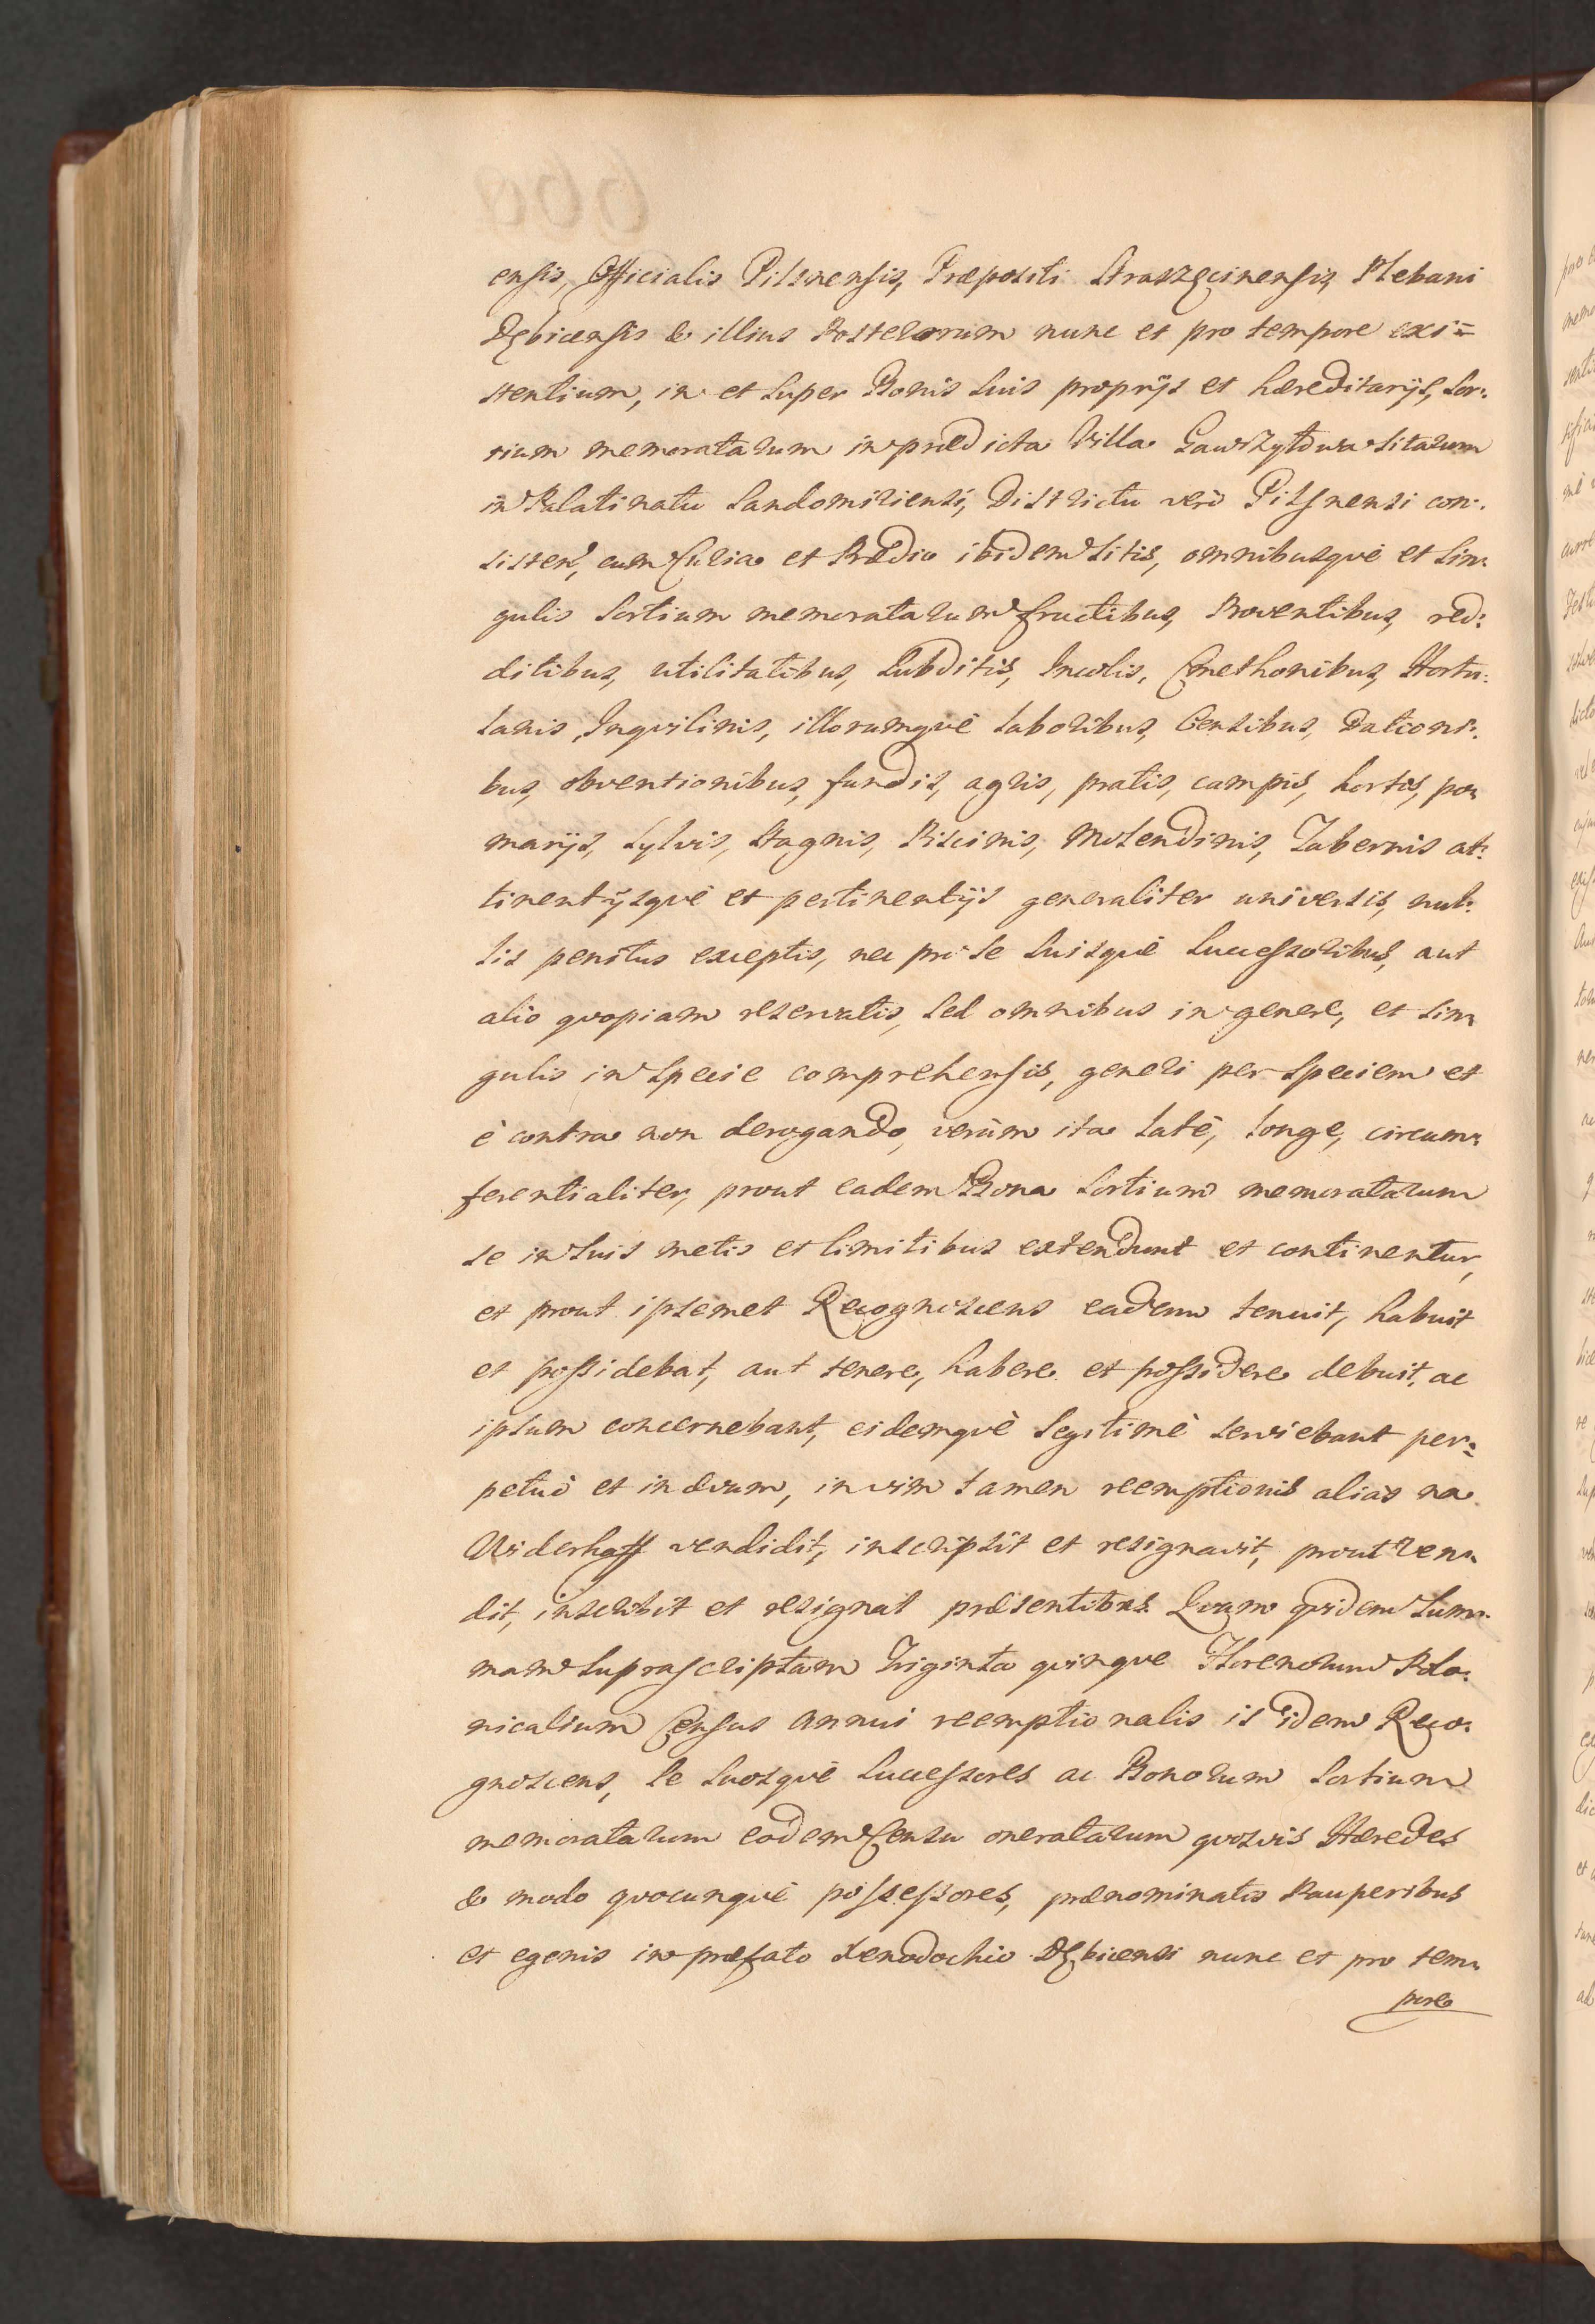 ensis, Officialis Pilsnensis, Præpositi Straszęcinensis, Plebani
Dębicensis & illius Posterorum nunc et pro tempore exi=
stentium, in et super Bonis suis proprijs et hæreditarijs, Sor:
tium memoratarum in prædicta Villa Gawrzyłowa sitarum
in Palatinatu Sandomiriensi, Districtu verò Pilsnensi con:
sisten, cum Curia et Prædio ibidem sitis, omnibusqvè et sin:
gulis Sortium memoratarum fructibus, Proventibus, red:
ditibus, utilitatibus, Subditis, Incolis, Cmethonibus, Hortu:
lanis, Inqvilinis, illorumqvè laboribus, Censibus, Dationi:
bus, obventionibus, fundis, agris, pratis, campis, hortis, po:
marijs, Sylvis, Stagnis, Piscinis, Molendinis, Tabernis at:
tinentijsqvè et pertinentijs generaliter universis, nul:
lis penitus exceptis, nec pro se suisqvè Successoribus, aut
alio qvopiam reservatis, sed omnibus in genere, et sin:
gulis in specie comprehensis, generi per speciem et
è contra non derogando, verùm ita latè, longe, circum:
ferentialiter, prout eadem Bona Sortium memoratarum
se in suis metis et limitibus extendunt et continentur,
et prout ipsemet Recognoscens eadem tenuit, habuit
et possidebat, aut tenere, habere et possidere debuit, ac
ipsum concernebant, eidemqvè legitimè serviebant per:
petuò et in ævum, in vim tamen reemptionis alias na
Widerhoff vendidit, inscripsit et resignavit, prout ven:
dit, inscribit et resignat præsentibus. Qvam qvidem Sum:
mam suprascriptam Triginta qvinqve Florenorum Polo:
nicalium Census annui reemptionalis is idem Reco:
gnoscens, se suosqvè Successores ac Bonorum Sortium
memoratarum eodem Censu oneratarum qvosvis Hæredes
& modo qvocunqvè possessores, prænominatis Pauperibus
et egenis in præfato Xenodochio Dębicensi nunc et pro tem:
pore